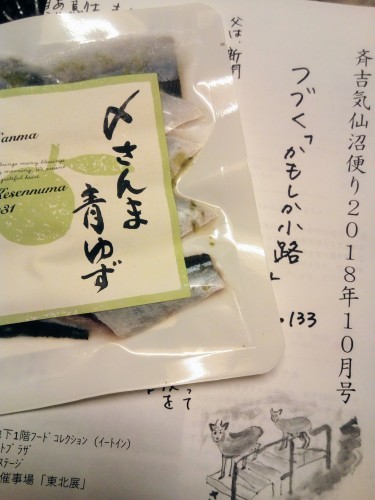 斉吉気仙沼便り2018年10月号
つづく「かもしか小路」
.133
父は、新月
〆さんま
青ゆず
anma
Kesennuma
31
下1階フードコレクション(イートイン)
トプラザ
ステージ
催事場「東北展」